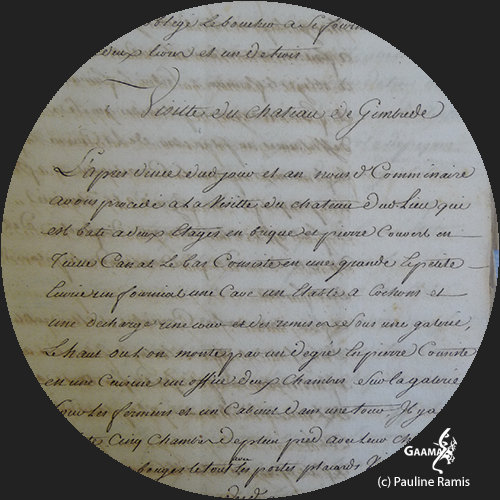 oblige le boucher a se fourn
deux livres et un de trois
Visitte du chateau de Gimbrede
L'apres dinée dud jour et an nous d. Commissaire
avons procedé a la Visitte du chateau dud Lieu qui
est bati a deux Etages en brique et pierre Couvert en
Tuille Canal. Le bas Consiste en une grande
Ecurie un fournial une Cave un a cochons et
une decharge une cour et des remises sous une galerie,
Le haut ou l'on monte par un degré en pierre Consiste
en une Cuisine un office deux Chambres sur la galerie
un Cabinet dans une tour Il y a
Cinq Chambres de plein pied avec leur
le tout les portes placards
GAAMA
(c) Pauline Ramis